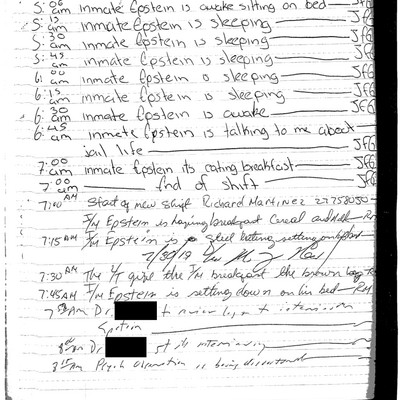 5:00 am inmate Epstein is awake sitting on bed JFG
5:15 am inmate Epstein is sleeping JFG
5:30 am inmate Epstein is sleeping JFG
5:45 am inmate Epstein is sleeping JFG
6:00 am inmate Epstein is sleeping JFG
6:15 am inmate Epstein is sleeping JFG
6:30 am inmate Epstein is awake JFG
6:45 am inmate Epstein is talking to me about
jail life JFG
7:00 am inmate Epstein its eating breakfast JFG
7:00 am End of shift JFG
7:00 AM Start of new shift Richard Martinez
I/M Epstein is having breakfast cereal and RM
7:15 AM I/M Epstein is setting on
7/30/19
7:30 AM The the I/M breakfast the brown bag RM
7:45 AM I/M Epstein is setting down on his bed RM
Dr. to review log to
Epstein
8:00 AM Dr. interviewing
8:15 AM Psych observation is being